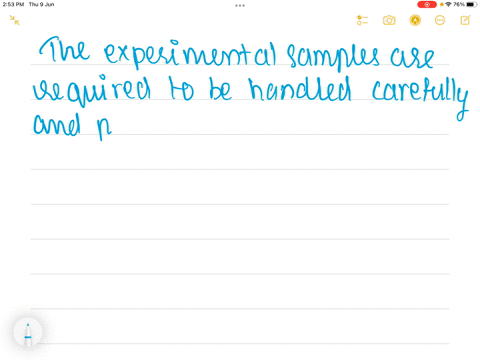 2:53 PM Thu 9 Jun
76%
The experimental samples are
required to be handled carefully
and p